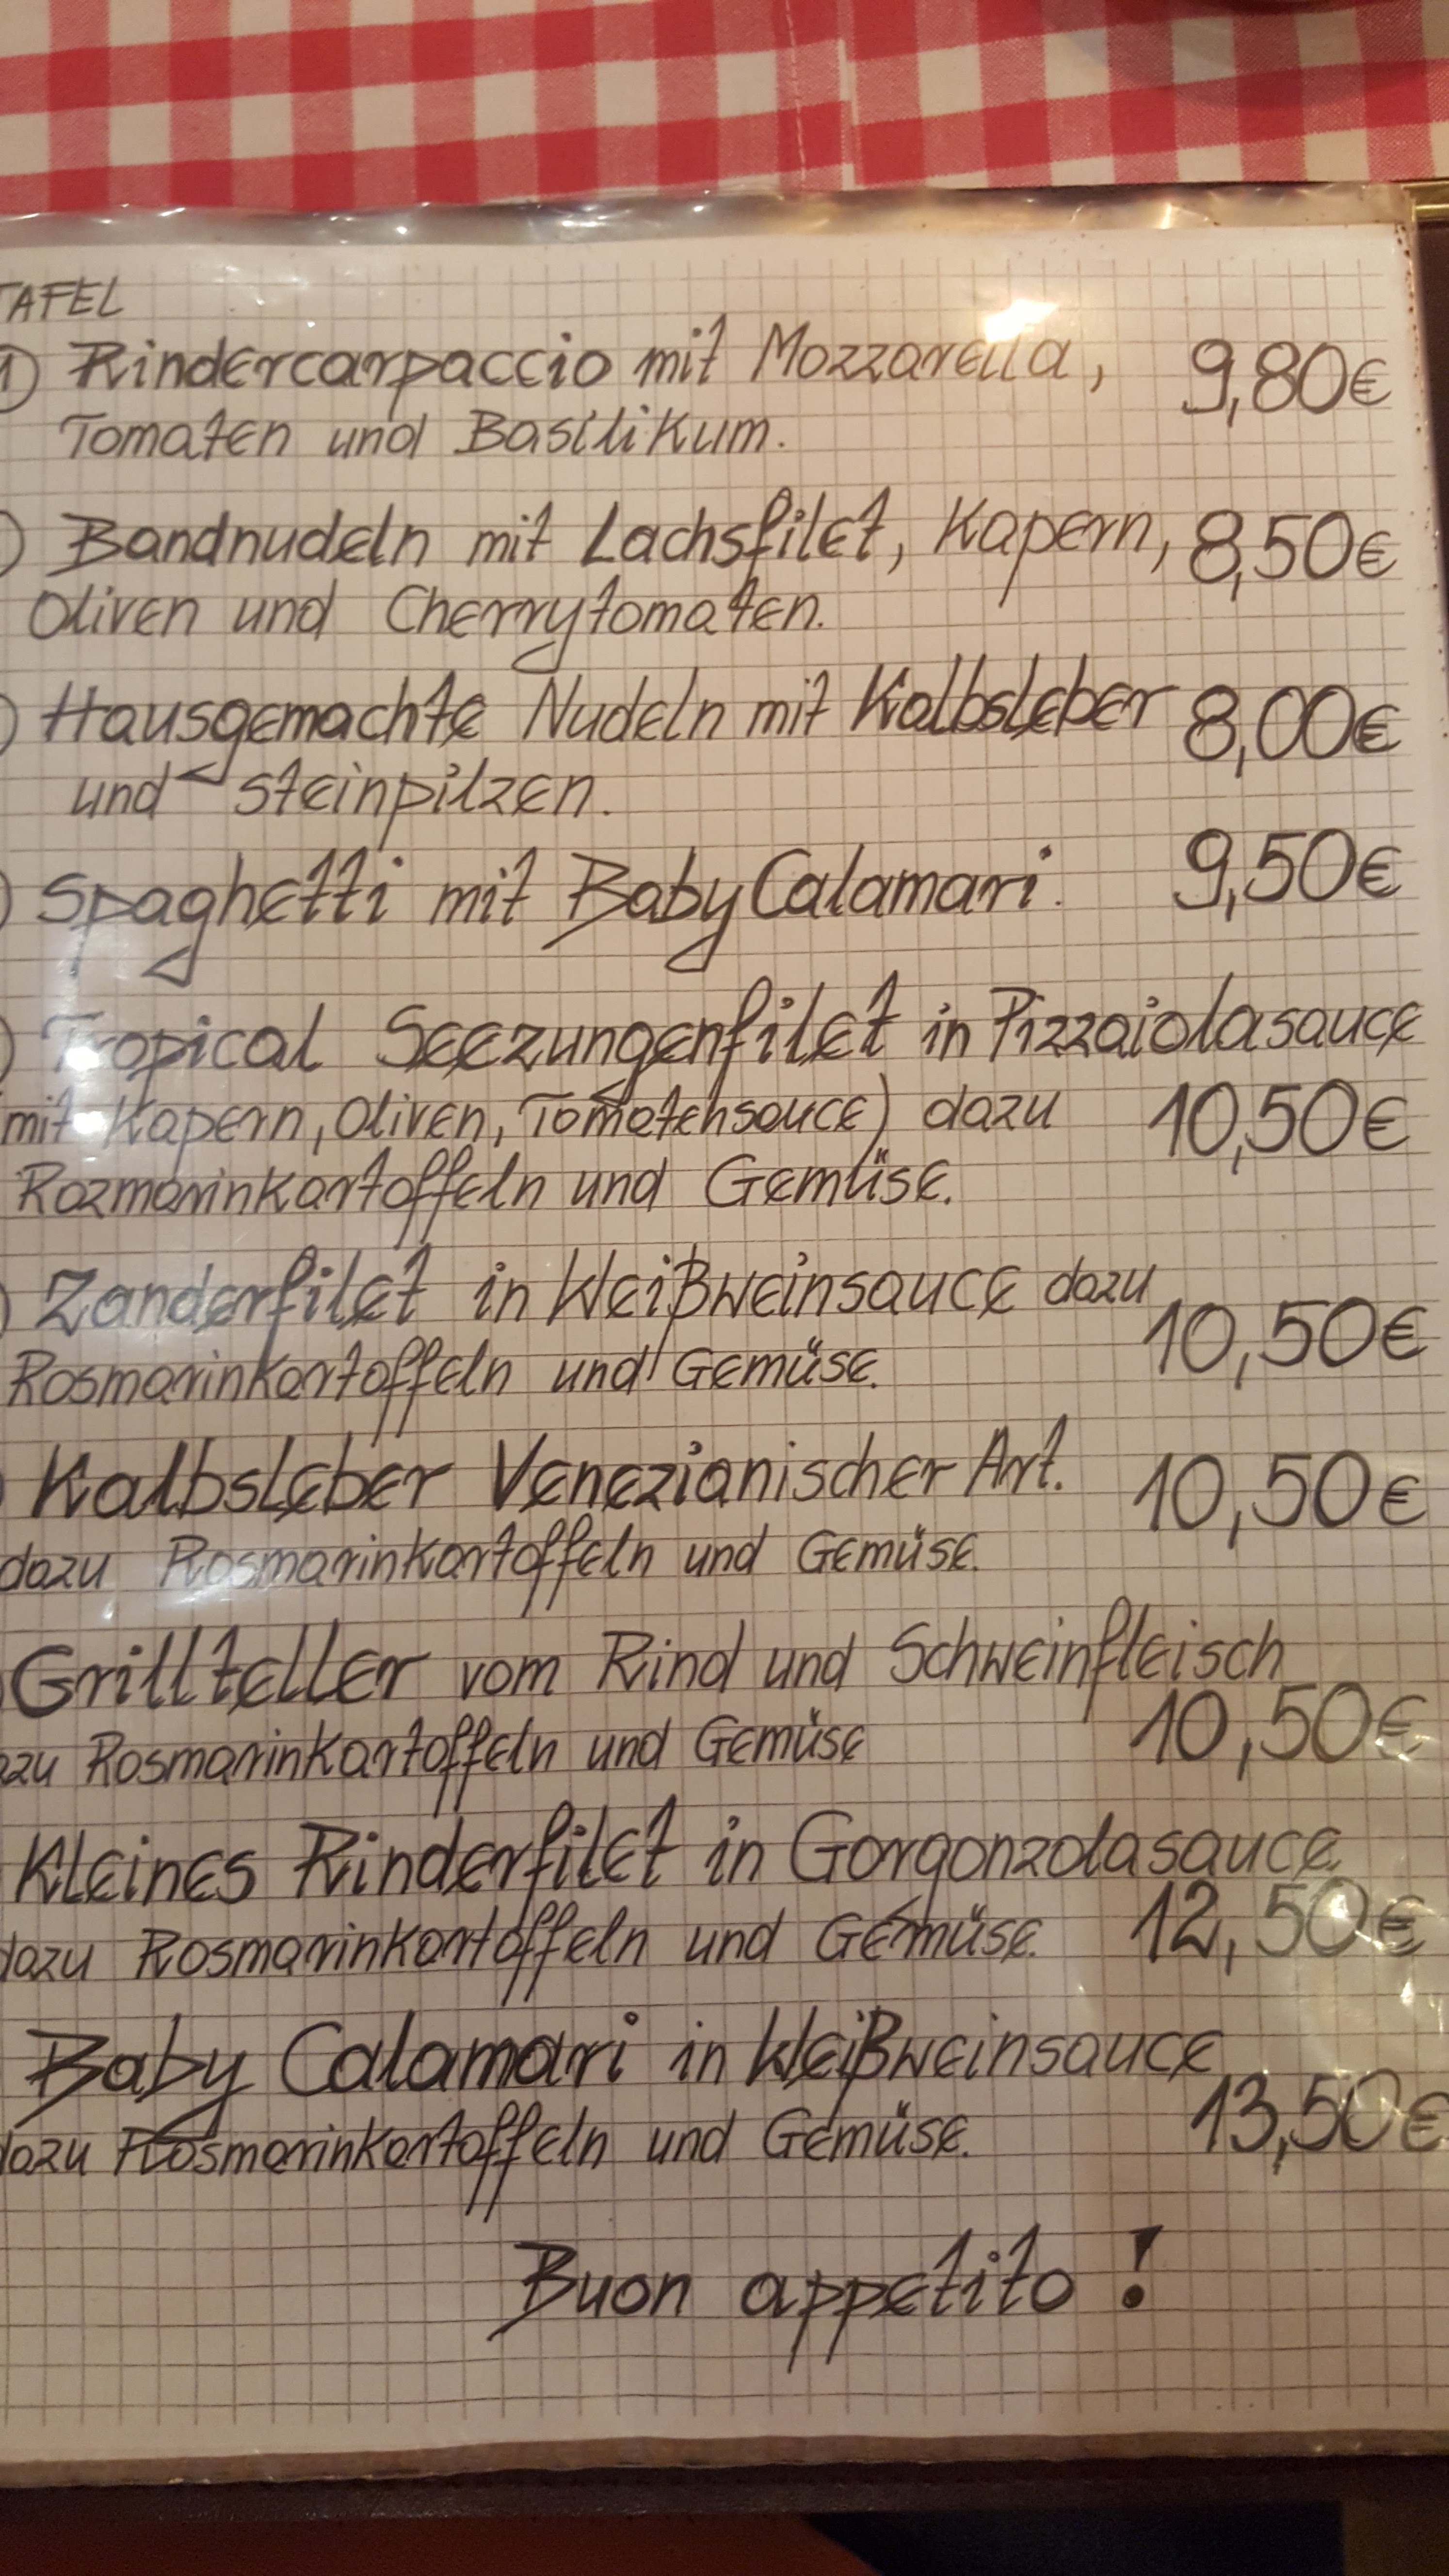 TAFEL
1) Rindercarpaccio mit Mozzarella, 9,80€
Tomaten und Basilikum.
) Bandnudeln mit Lachsfilet, Kapern, 8,50€
Oliven und Cherrytomaten.
) Hausgemachte Nudeln mit Kalbsleber 8,00€
und Steinpilzen.
) Spaghetti mit Baby Calamari. 9,50€
) Tropical Seezungenfilet in Pizzaiolasauce
mit Kapern, Oliven, Tomatensauce) dazu 10,50€
Rozmarinkartoffeln und Gemüse.
) Zanderfilet in Weißweinsauce dazu 10,50€
Rosmarinkartoffeln und Gemüse.
) Kalbsleber Venezianischer Art. 10,50€
dazu Rosmarinkartoffeln und Gemüse.
) Grillteller vom Rind und Schweinfleisch
azu Rosmarinkartoffeln und Gemüse 10,50€
Kleines Rinderfilet in Gorgonzolasauce
dazu Rosmarinkartoffeln und Gemüse. 12,50€
Baby Calamari in Weißweinsauce
dazu Rosmarinkartoffeln und Gemüse. 13,50€
Buon appetito!